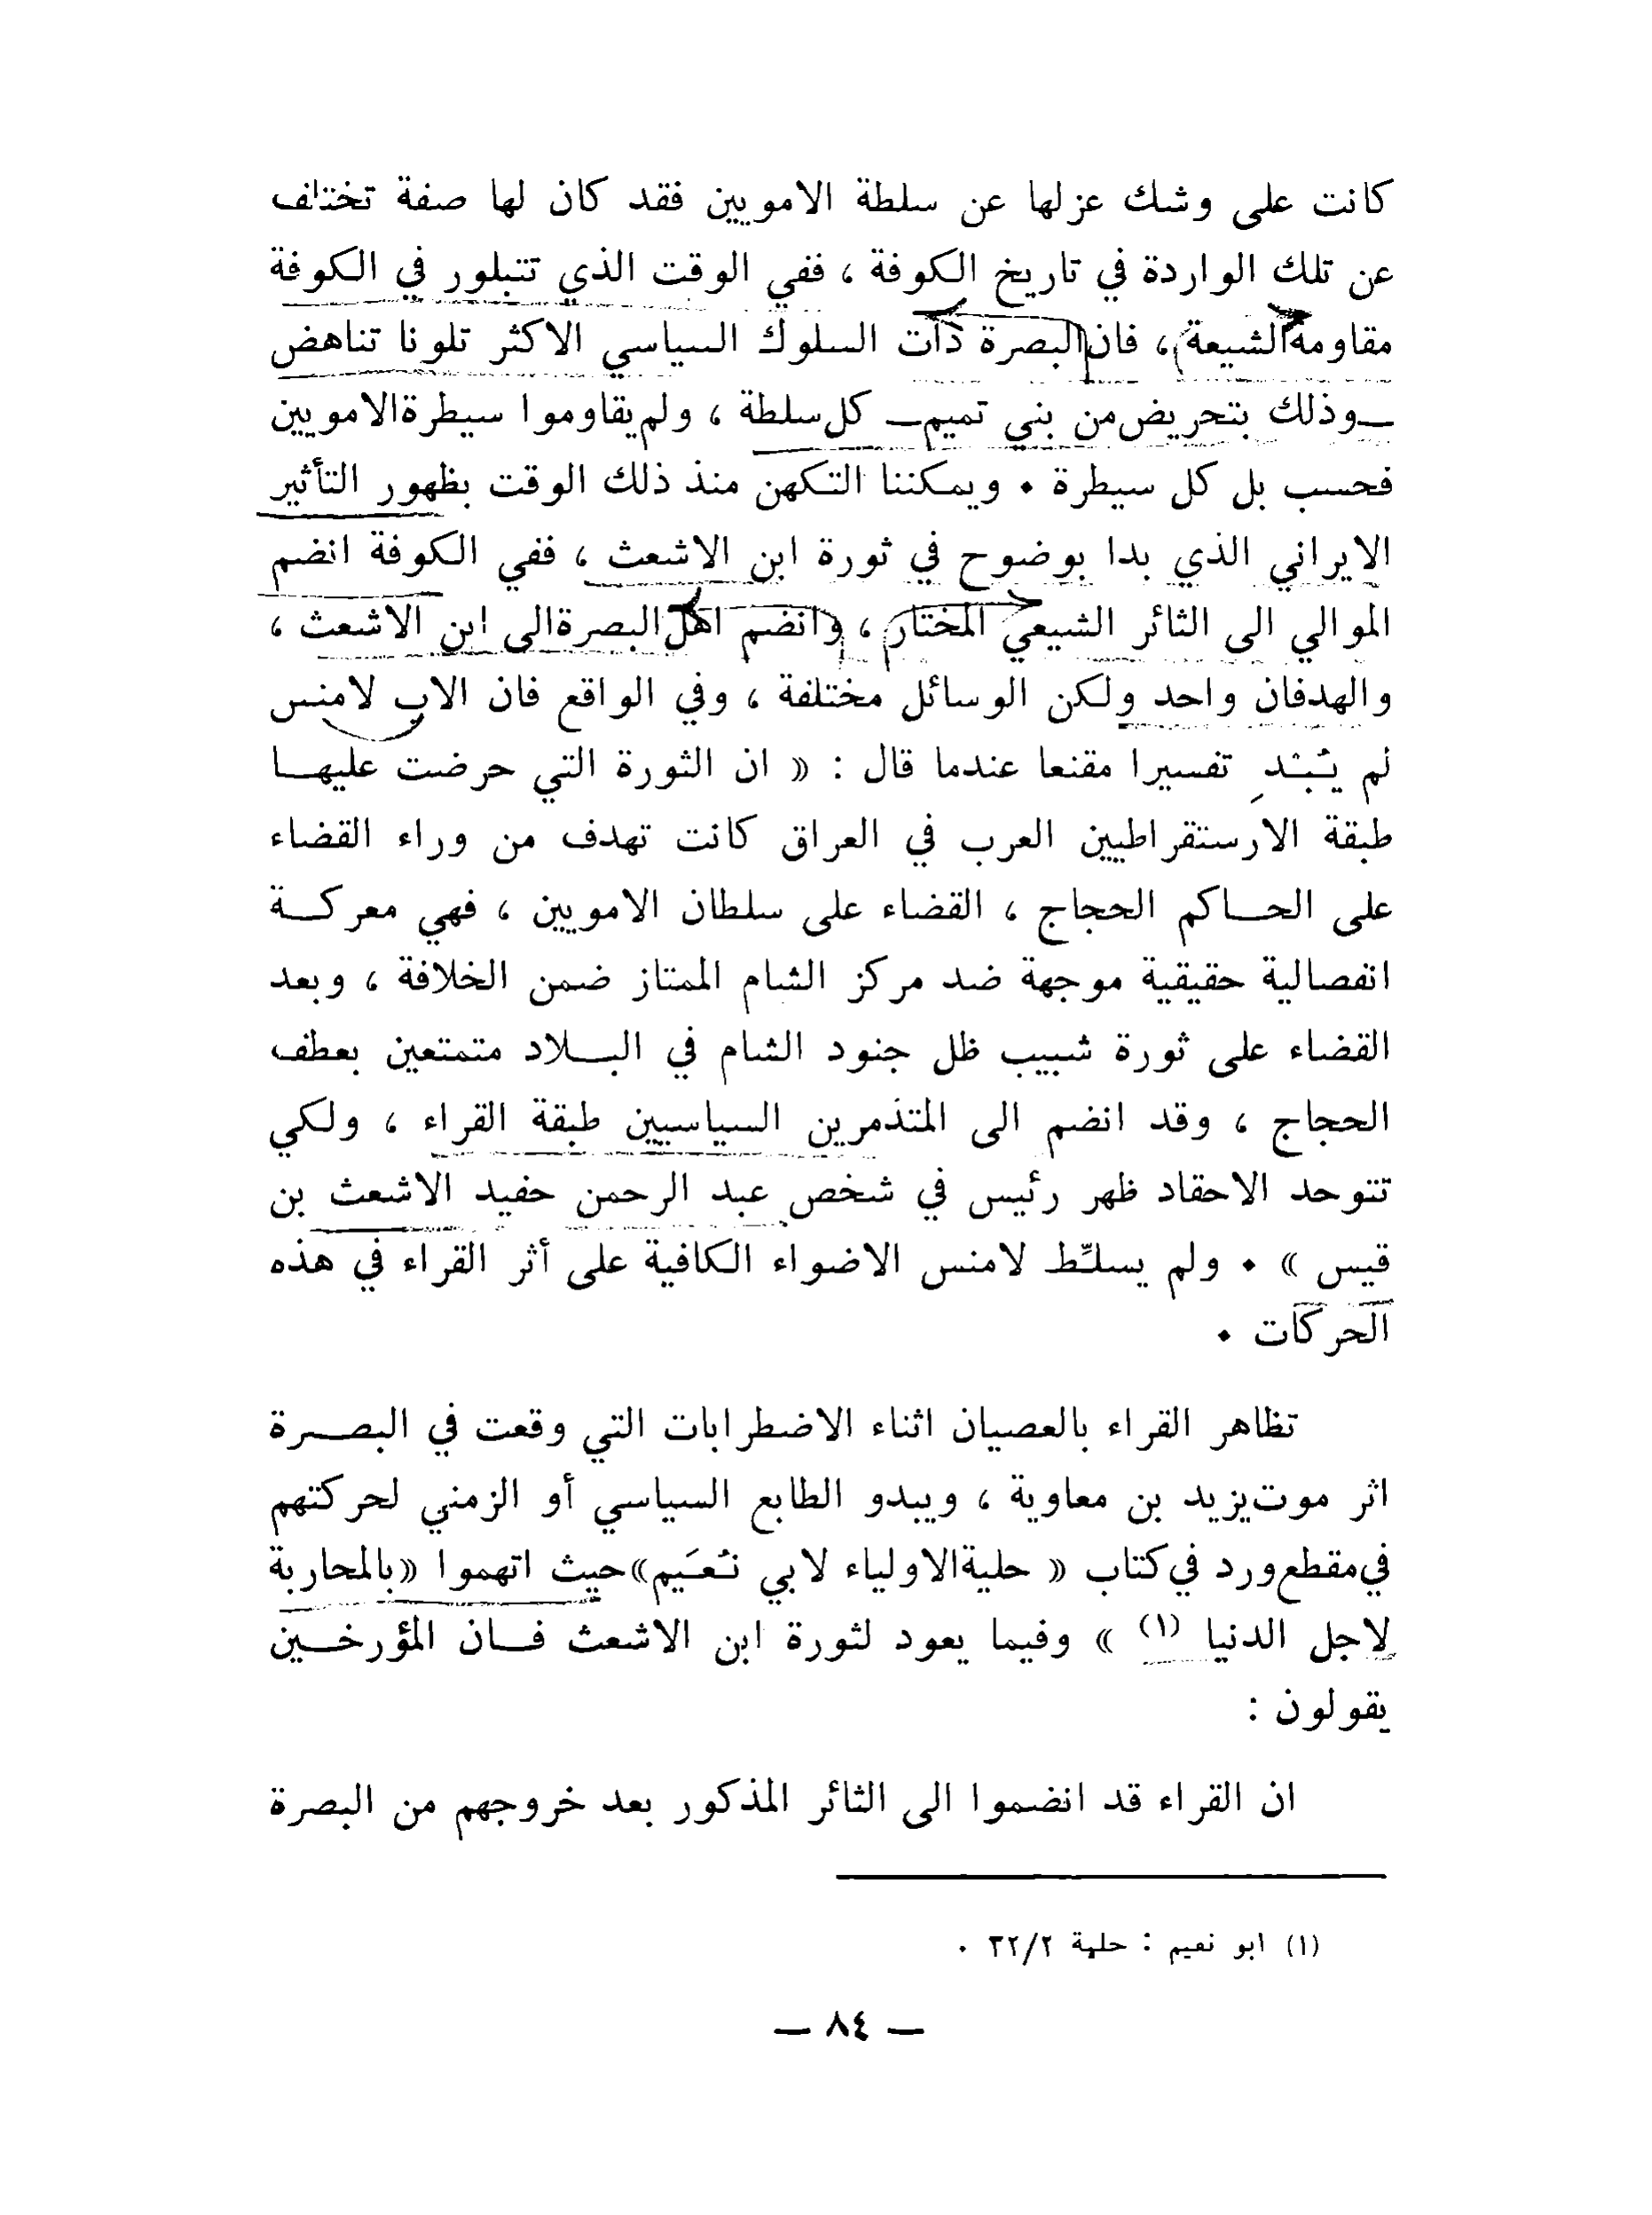 كانت على وشك عزلها عن سلطة الامويين فقد كان لها صفة تختلف
عن تلك الواردة في تاريخ الكوفة ، ففي الوقت الذي تتبلور في الكوفة
مقاومة الشيعة ، فان البصرة ذات السلوك السياسي الاكثر تلونا تناهض
ــ وذلك بتحريض من بني تميم ــ كل سلطة ، ولم يقاوموا سيطرة الامويين
فحسب بل كل سيطرة • ويمكننا التكهن منذ ذلك الوقت بظهور التأثير
الايراني الذي بدا بوضوح في ثورة ابن الاشعث ، ففي الكوفة انضم
الموالي الى الثائر الشيعي المختار ، وانضم اهل البصرة الى ابن الاشعث ،
والهدفان واحد ولكن الوسائل مختلفة ، وفي الواقع فان الاب لامنس
لم يُبْدِ تفسيرا مقنعا عندما قال : « ان الثورة التي حرضت عليهــا
طبقة الارستقراطيين العرب في العراق كانت تهدف من وراء القضاء
على الحــاكم الحجاج ، القضاء على سلطان الامويين ، فهي معركــة
انفصالية حقيقية موجهة ضد مركز الشام الممتاز ضمن الخلافة ، وبعد
القضاء على ثورة شبيب ظل جنود الشام في البــلاد متمتعين بعطف
الحجاج ، وقد انضم الى المتذمرين السياسيين طبقة القراء ، ولكي
تتوحد الاحقاد ظهر رئيس في شخص عبد الرحمن حفيد الاشعث بن
قيس » • ولم يسلِّط لامنس الاضواء الكافية على أثر القراء في هذه
الحركات •
تظاهر القراء بالعصيان اثناء الاضطرابات التي وقعت في البصــرة
اثر موت يزيد بن معاوية ، ويبدو الطابع السياسي أو الزمني لحركتهم
في مقطع ورد في كتاب « حلية الاولياء لابي نُعَيم » حيث اتهموا « بالمحاربة
لاجل الدنيا (١) » وفيما يعود لثورة ابن الاشعث فــان المؤرخــين
يقولون :
ان القراء قد انضموا الى الثائر المذكور بعد خروجهم من البصرة
(١) ابو نعيم : حلية ٣٢/٢ •
— ٨٤ —